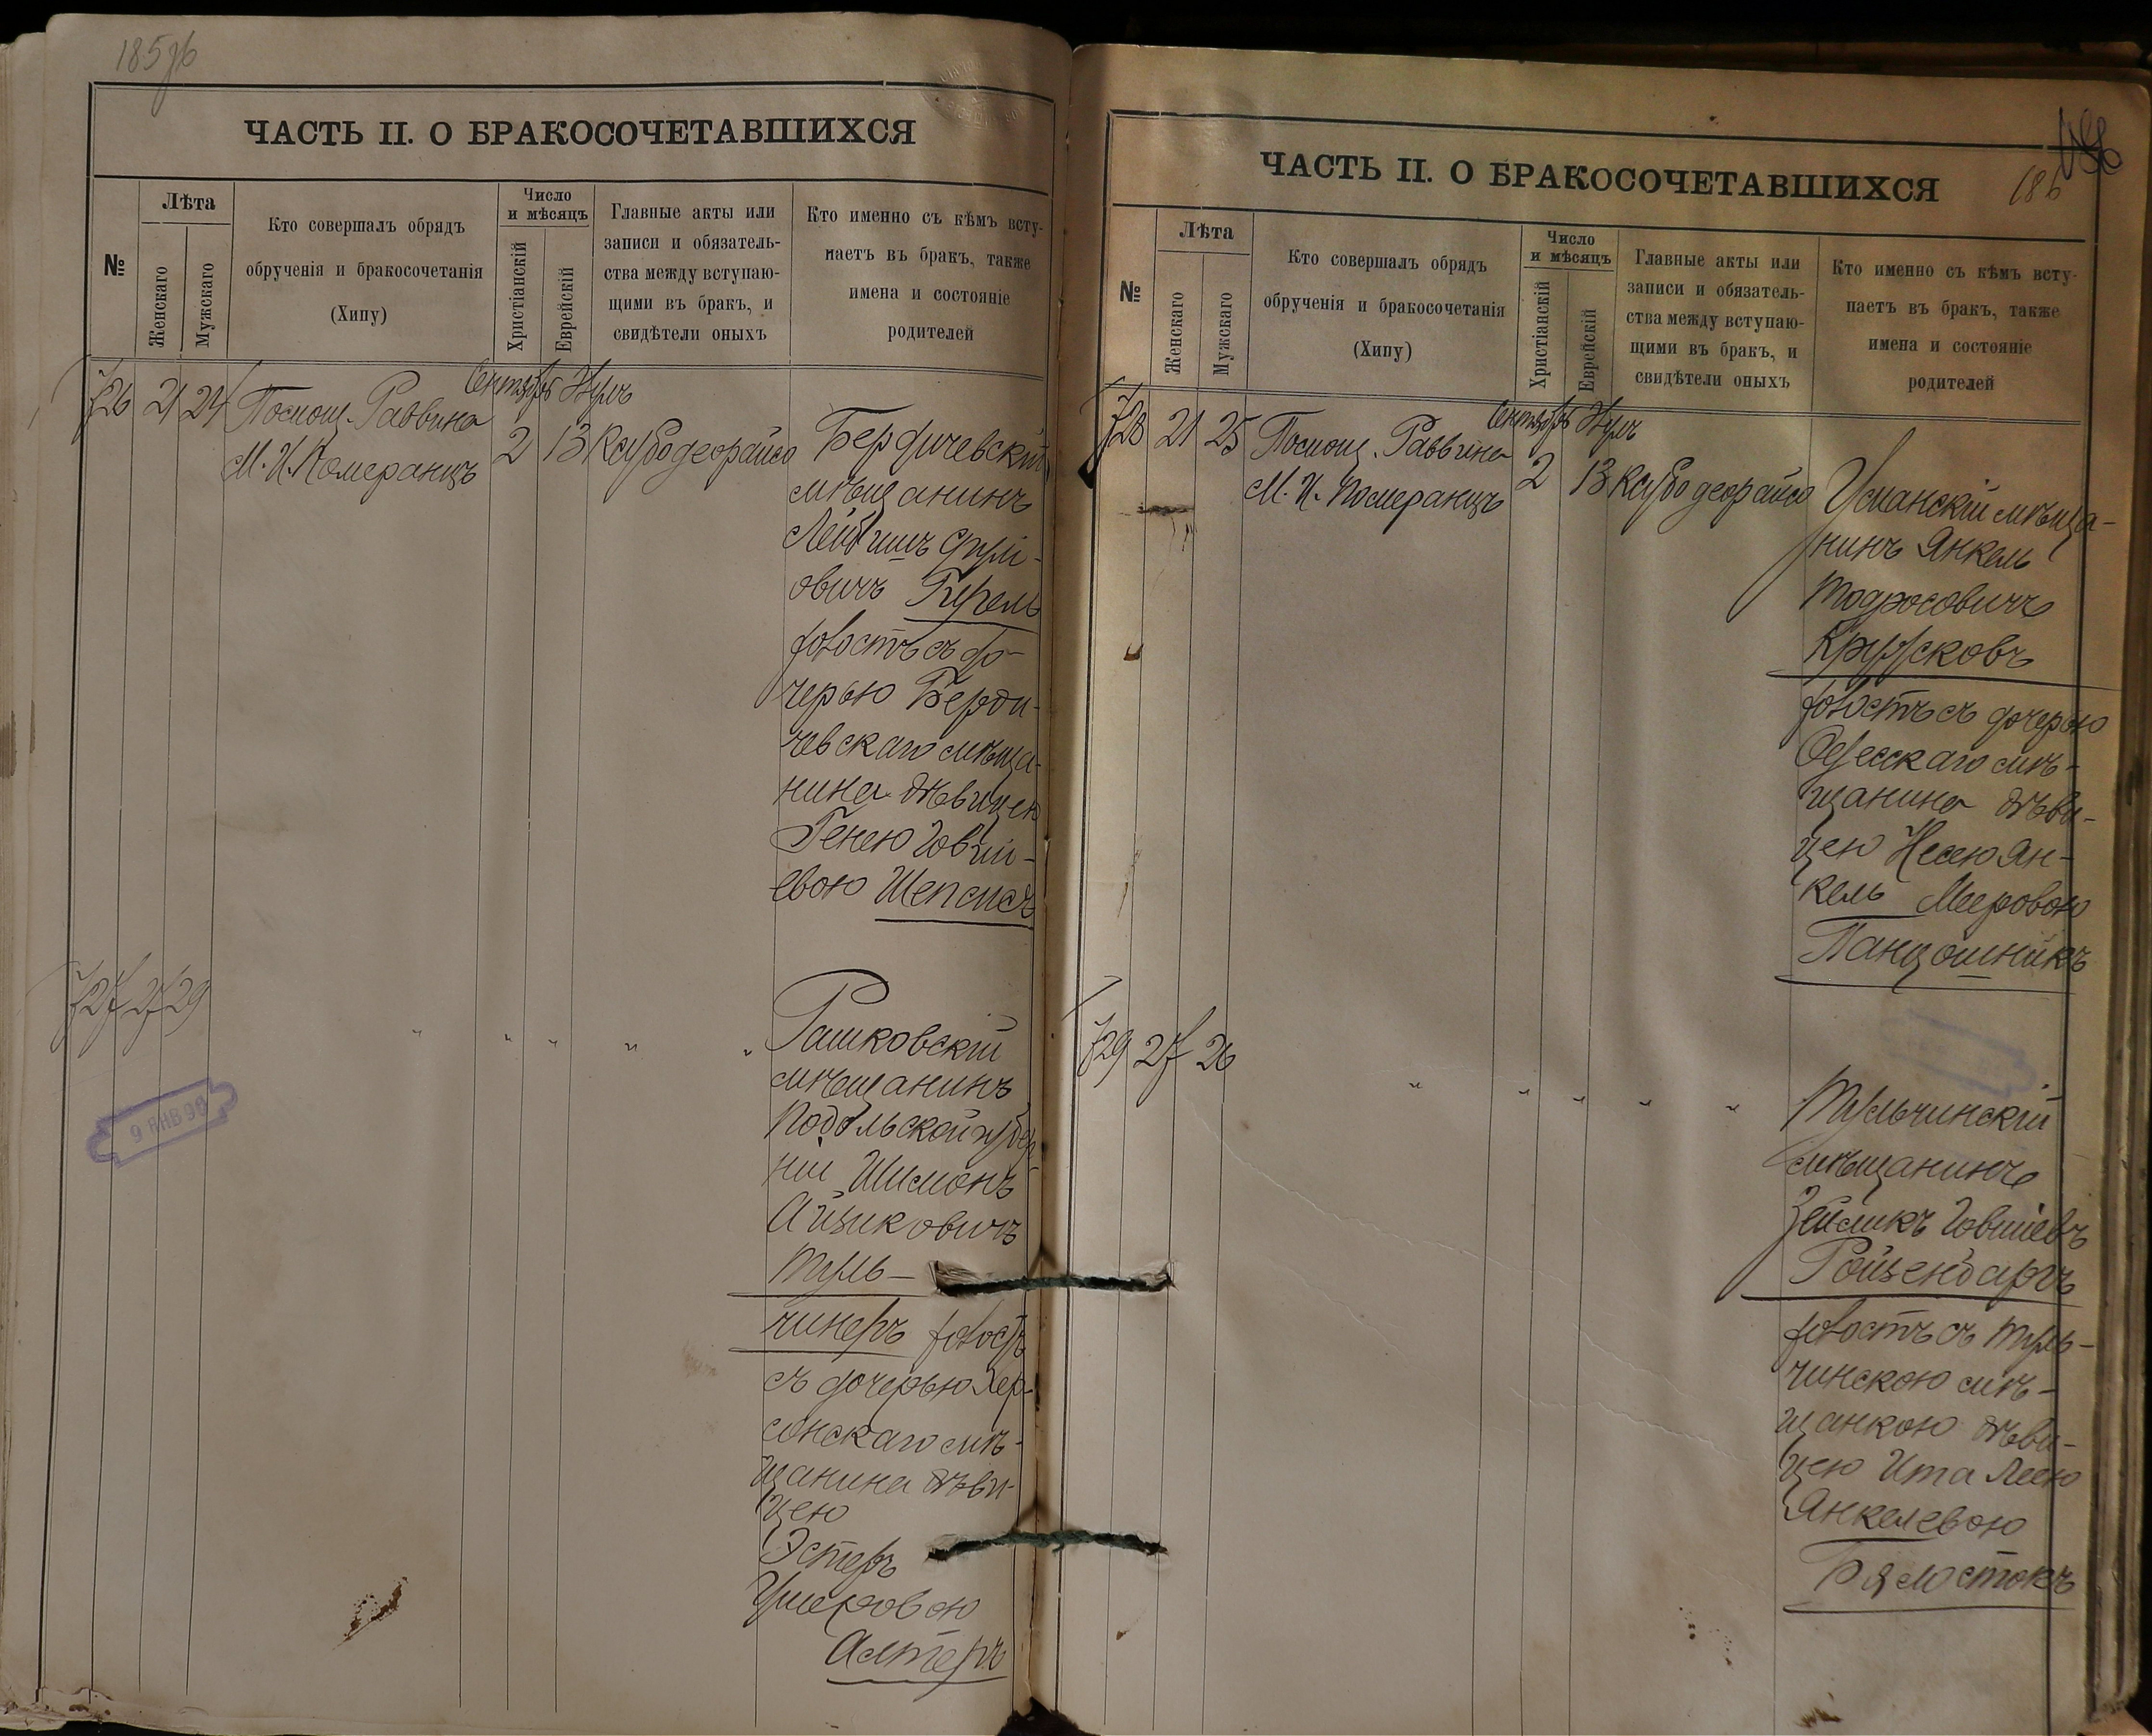 185об
ЧАСТЬ II. О БРАКОСОЧЕТАВШИХСЯ
№
Лѣта
Женскаго
Мужскаго
Кто совершалъ обрядъ
обрученія и бракосочетанія
(Хипу)
Число
и мѣсяцъ
Христіанскій
Еврейскій
Главные акты или
записи и обязатель-
ства между вступаю-
щими въ бракъ, и
свидѣтели оныхъ
Кто именно съ кѣмъ всту-
паетъ въ бракъ, также
имена и состояніе
родителей
726 21 24 Помощ. Раввина
М. И. Померанцъ
Сентябрь
2 13
Бердичевскій
мѣщанинъ
Лейбишъ
овичъ
холостъ съ до-
черью Берди-
чевскаго мѣща-
нина дѣвицею
Генею Іовши-
евою Шепсисъ
727 27 29
" " " " "
Рашковскій
мѣщанинъ
Подольской губер-
ніи Шимонъ
Айзиковичъ
Туль-
чинеръ холостъ
съ дочерью Хер-
сонскаго мѣ-
щанина дѣви-
цею
Эстеръ
Ушеровою
Алтеръ
9 ЯНВ 90
ЧАСТЬ II. О БРАКОСОЧЕТАВШИХСЯ
186
№
Лѣта
Женскаго
Мужскаго
Кто совершалъ обрядъ
обрученія и бракосочетанія
(Хипу)
Число
и мѣсяцъ
Христіанскій
Еврейскій
Главные акты или
записи и обязатель-
ства между вступаю-
щими въ бракъ, и
свидѣтели оныхъ
Кто именно съ кѣмъ всту-
паетъ въ бракъ, также
имена и состояніе
родителей
728 21 25 Помощ. Раввина
М. И. Померанцъ
Сентябрь
2 13
Уманскій мѣща-
нинъ Янкель
Тодросовичъ
холостъ съ дочерью
Одесскаго мѣ-
щанина дѣви-
цею Несею Ян-
кель Мееровою
729 27 26
" " " " "
Тульчинскій
мѣщанинъ
Зейликъ Іовшіевъ
Ройзенбаргъ
холостъ съ Туль-
чинскою мѣ-
щанкою дѣви-
цею Ита Леею
Янкелевою
Бялостокъ